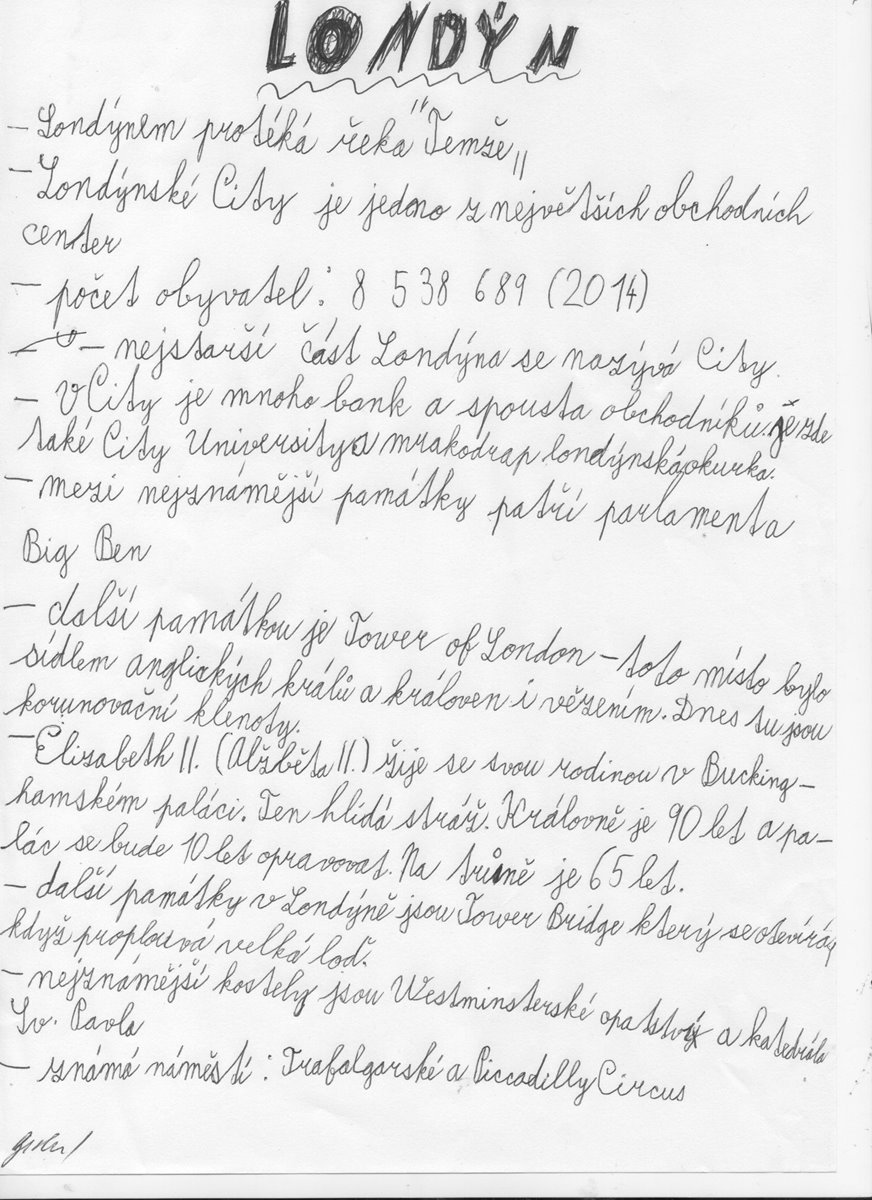 LONDÝN
– Londýnem protéká řeka "Temže„
– Londýnské City je jedno z největších obchodních
center
– počet obyvatel: 8 538 689 (2014)
– nejstarší část Londýna se nazývá City.
– V City je mnoho bank a spousta obchodníků. Je zde
také City University a mrakodrap londýnská okurka.
– mezi nejznámější památky patří parlament a
Big Ben
– další památkou je Tower of London – toto místo bylo
sídlem anglických králů a královen i vězením. Dnes tu jsou
korunovační klenoty.
– Elizabeth II. (Alžběta II.) žije se svou rodinou v Bucking–
hamském paláci. Ten hlídá stráž. Královně je 90 let a pa–
lác se bude 10 let opravovat. Na trůně je 65 let.
– další památky v Londýně jsou Tower Bridge který se otevírá,
když proplouvá velká loď.
– nejznámější kostely jsou Westminsterské opatství a katedrála
Sv. Pavla
– známá náměstí: Trafalgarské a Piccadilly Circus